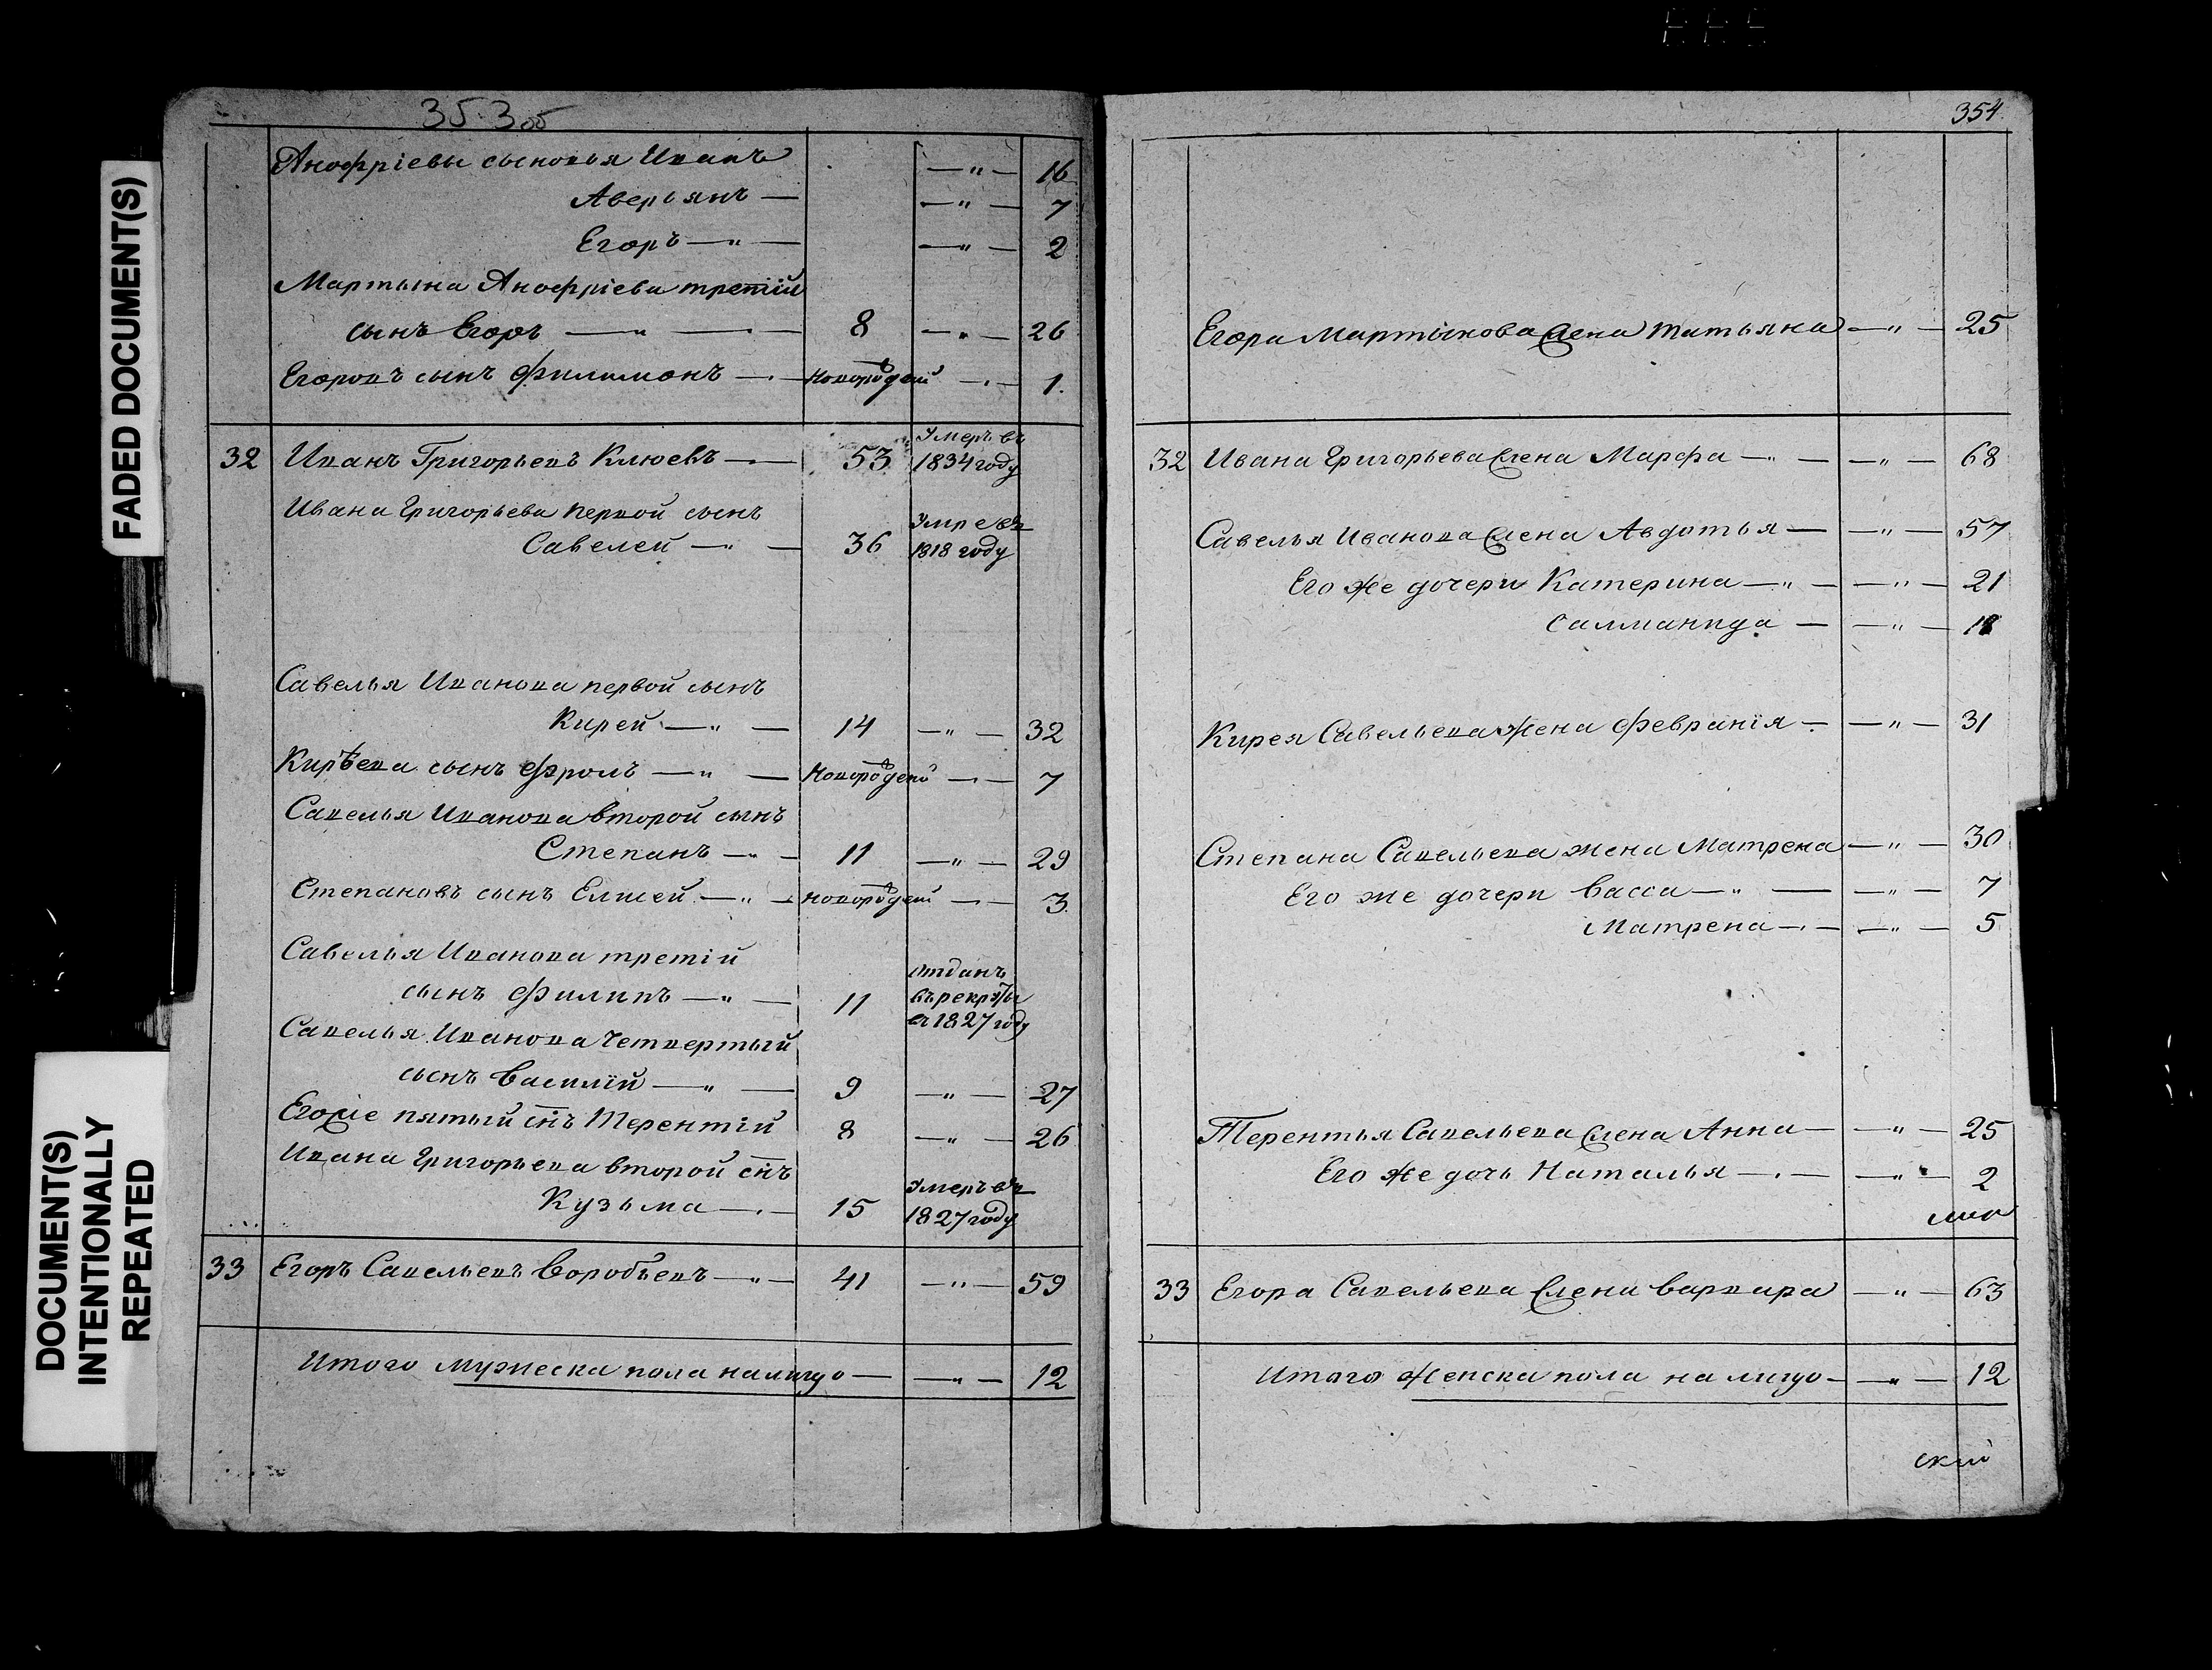 353 об
Анофріевы сыновья Иванъ — " — 16
Аверьянъ — — " — 7
Егоръ — " — — " — 2
Мартына Анофріева третій
сынъ Егоръ — " — 8 — " — 26
Егоровъ сынъ Филимонъ — новорожденный — 1.
32 Иванъ Григорьевъ Клюевъ — 53 Умеръ въ
1834 году
Ивана Григорьева первой сынъ
Савелей — " — 36 Умре въ
1818 году
Савелья Иванова первой сынъ
Кирей — " — 14 — " — 32
Кирѣева сынъ Фролъ — " — новорожденный — 7
Савелья Иванова второй сынъ
Степанъ — " — 11 — " — 29
Степановъ сынъ Елисей — " — новорожденный — 3.
Савелья Иванова третій
сынъ Филипъ — " — 11 отданъ
въ рекруты
въ 1827 году
Савелья Иванова четвертый
сынъ Василій — " — 9 — " — 27
Егоже пятый снъ Терентій 8 — " — 26
Ивана Григорьева второй снъ
Кузьма — 15 Умеръ въ
1827 году
33 Егоръ Савельевъ Воробьевъ — " — 41 — " — 59
Итого мужеска пола налицо — — " — 12
354
Егора Мартынова жена Татьяна — " — 25
32 Ивана Григорьева жена Марфа — " — — " — 68
Савелья Иванова жена Авдотья — — " — 57
Его же дочери Катерина — " — — " — 21
Салманида — — " — 18
Кирея Савельева жена Февранія — — " — 31
Степана Савельева жена Матрена — " — 30
Его же дочери Васса — " — — " — 7
Матрена — — " — 5
Терентья Савельева жена Анна — — " — 25
Его же дочь Наталья — — " — 2
33 Егора Савельева жена Варвара — " — 63
Итого женска пола на лицо — — " — 12
ский
FADED DOCUMENT(S)
DOCUMENT(S)
INTENTIONALLY
REPEATED